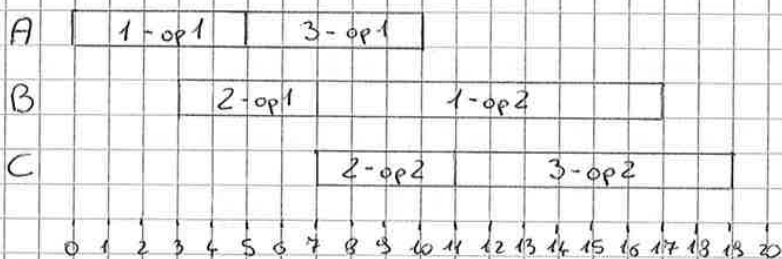 A 1-op1 3-op1
B 2-op1 1-op2
C 2-op2 3-op2
0 1 2 3 4 5 6 7 8 9 10 11 12 13 14 15 16 17 18 19 20